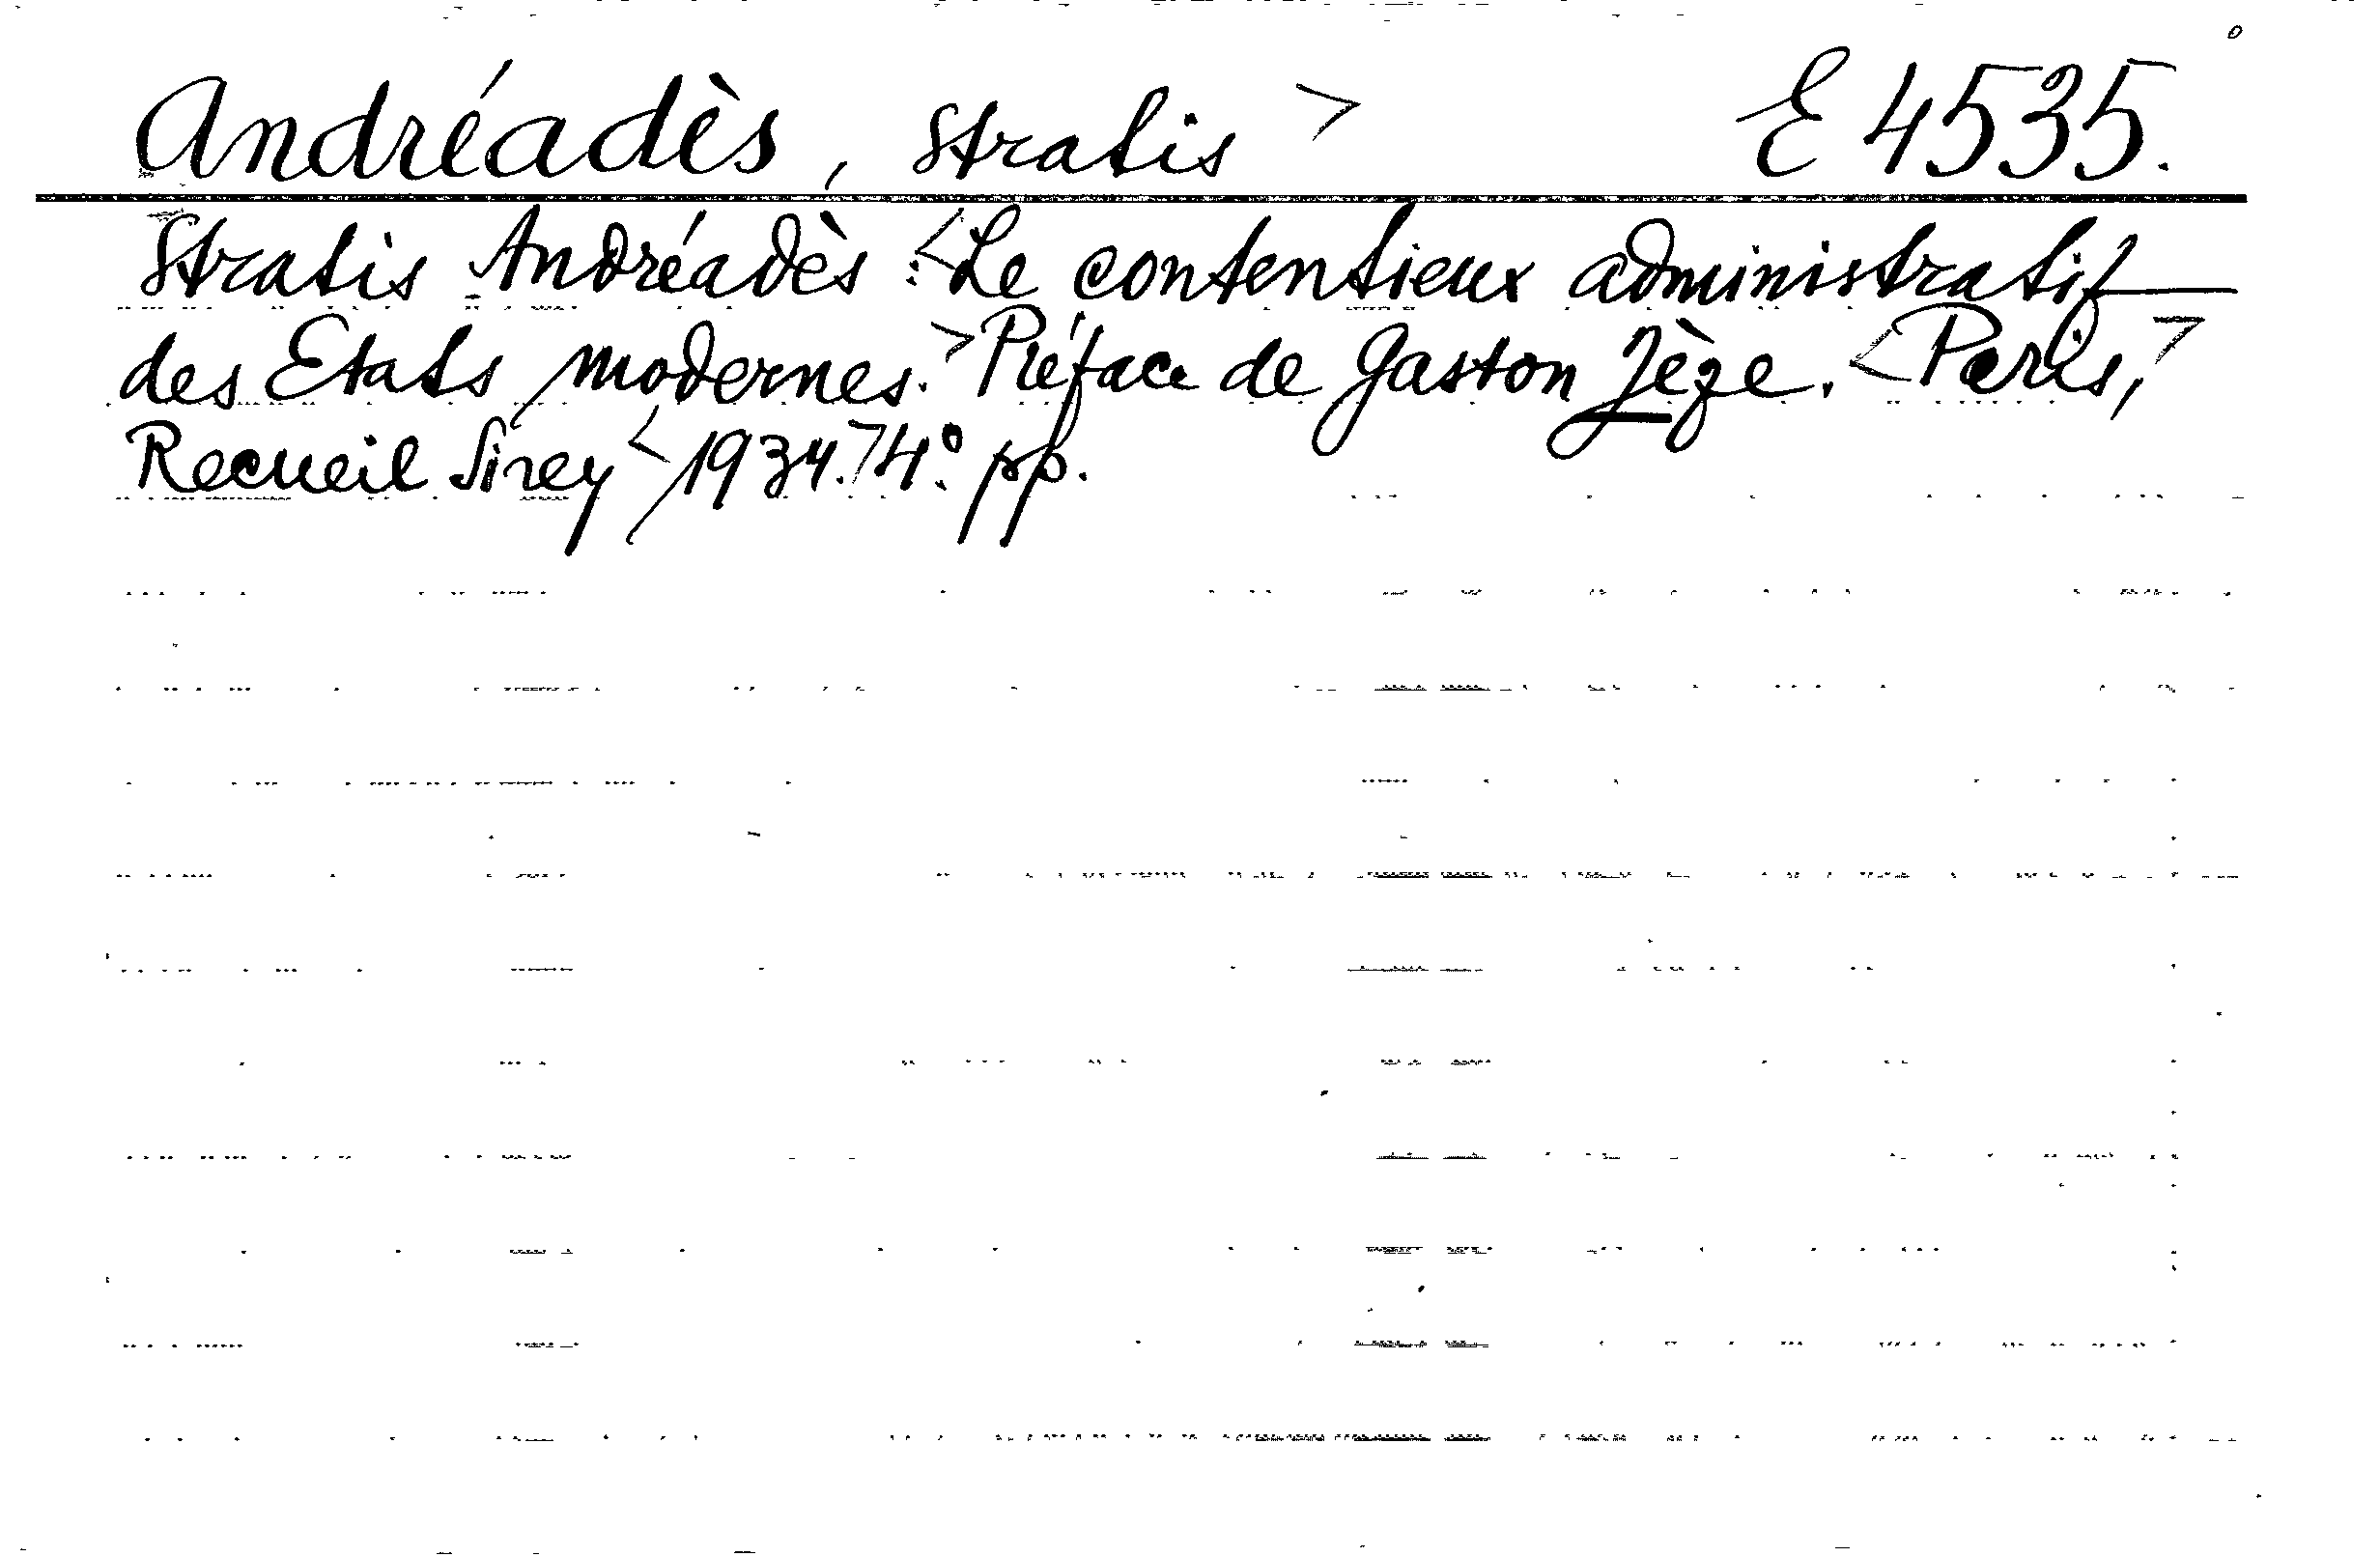 Andréadès, Stratis > E 4535.
Stratis Andréadès: <Le contentieux administratif
des Etats modernes.> Préface de Gaston Jèze. <Paris,>
Recueil Sirey < 1934.> 4° pp.